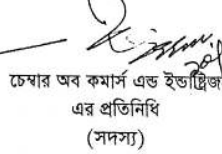 চেম্বার অব কমার্স এন্ড ইন্ডাষ্ট্রিজ
এর প্রতিনিধি
(সদস্য)